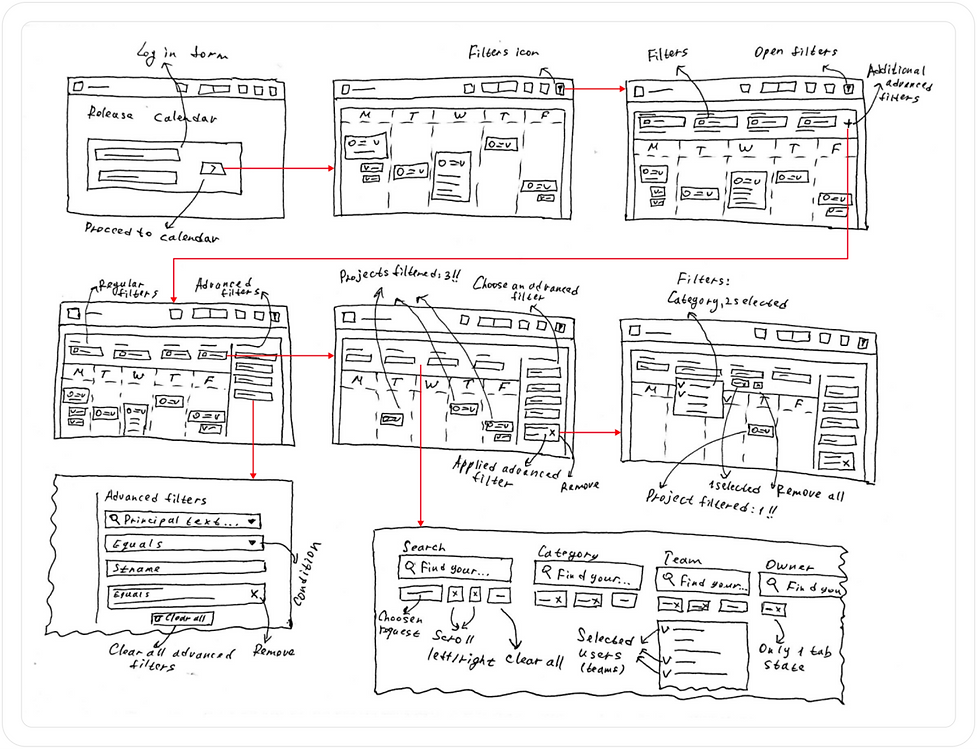 Log in form
Release Calendar
>
Proceed to calendar
Filters icon
M T W T F
Filters
Open filters
Additional
advanced
filters
+
M T W T F
Regular
filters
Advanced
filters
M T W T F
Projects filtered: 3!!
Choose an advanced
filter
M T W T F
x
Applied advanced
filter
Remove
Filters:
Category, 2 selected
M F
x
1 selected
Remove all
Project filtered: 1!!
Advanced filters
Principal text...
Equals
Stname
Equals x
Clear all
Condition
Clear all advanced
filters
Remove
Search
Find your...
Choosen
request
Scroll
left/right
Clear all
Category
Find your...
Team
Find your...
Selected
users
(teams)
Owner
Find you
Only 1 tab
state